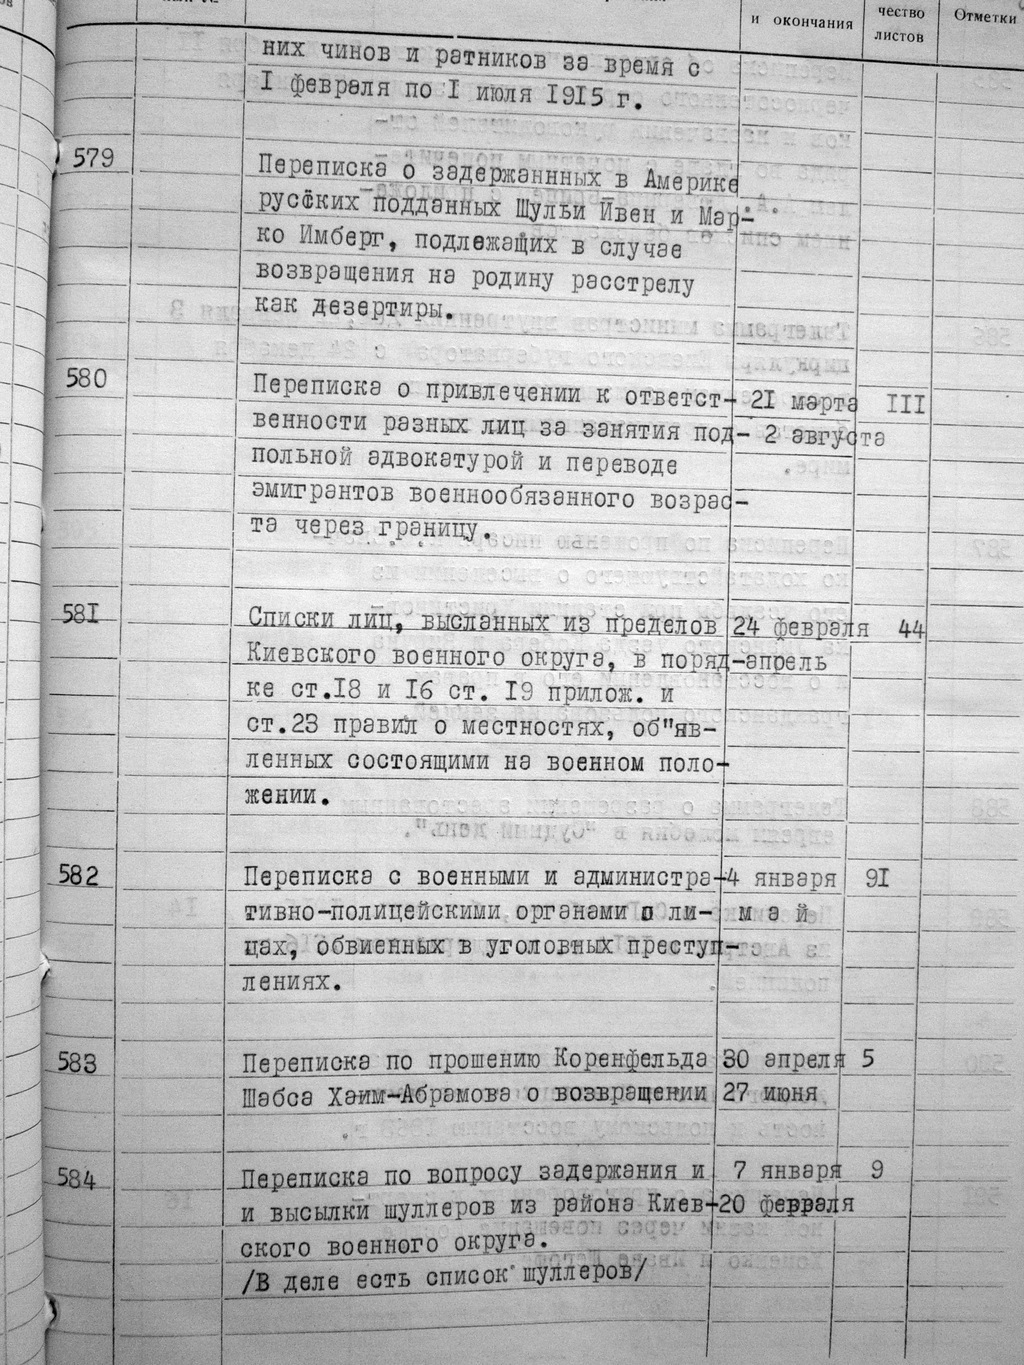 и окончания
чество
листов
Отметки
них чинов и ратников за время с
I февраля по I июля 1915 г.
579
Переписка о задержаннных в Америке
русских подданных Шульи Ивен и Мар-
ко Имберг, подлежащих в случае
возвращения на родину расстрелу
как дезертиры.
580
Переписка о привлечении к ответст- 21 марта III
венности разных лиц за занятия под- 2 августа
польной адвокатурой и переводе
эмигрантов военнообязанного возрас-
та через границу.
581
Списки лиц, высланных из пределов 24 февраля 44
Киевского военного округа, в поряд-апрель
ке ст.18 и 16 ст. 19 прилож. и
ст.23 правил о местностях, об"яв-
ленных состоящими на военном поло-
жении.
582
Переписка с военными и администра-4 января 91
тивно-полицейскими органами о ли- м а й
цах, обвиенных в уголовных преступ-
лениях.
583
Переписка по прошению Коренфельда 30 апреля 5
Шабса Хаим-Абрамова о возвращении 27 июня
584
Переписка по вопросу задержания и 7 января 9
и высылки шуллеров из района Киев-20 февраля
ского военного округа.
/В деле есть список шуллеров/